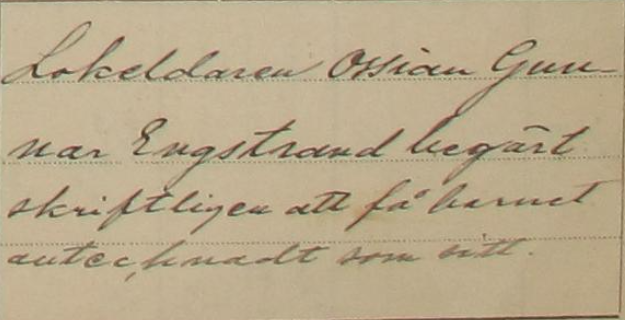 Lokeldaren Ossian Gun-
nar Engstrand begärt
skriftligen att få barnet
antecknadt som sitt.